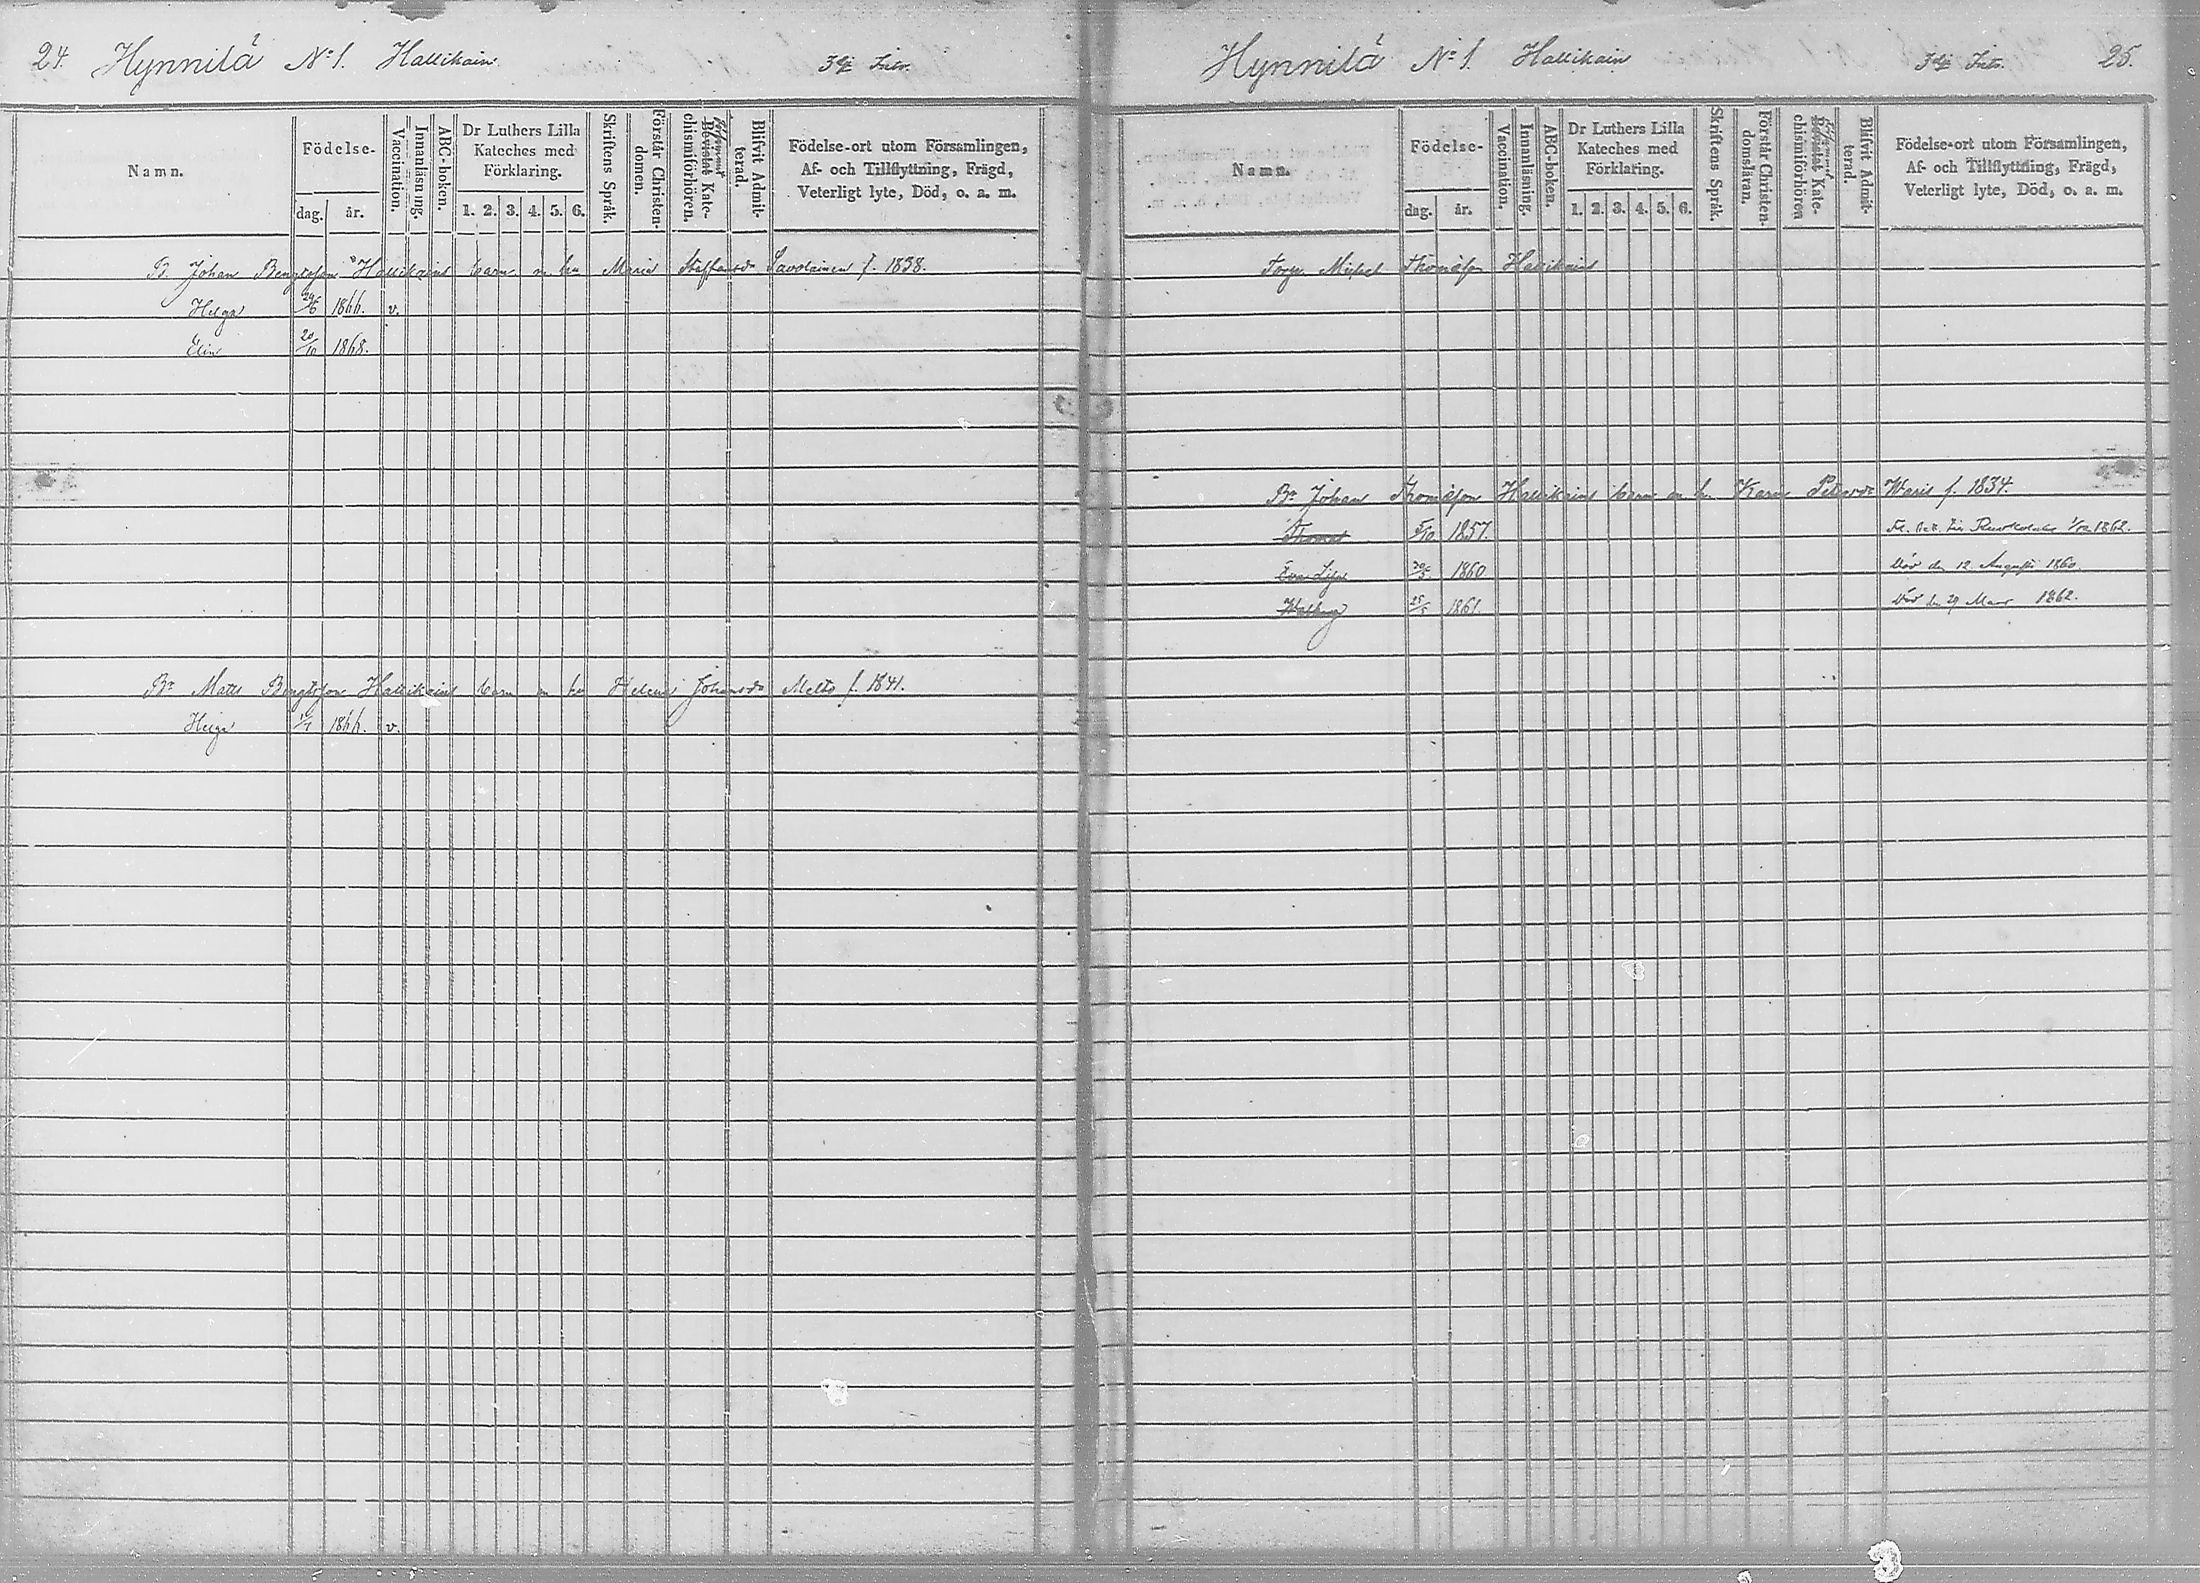 24. Hynnilä No 1. Hallikain
Namn.
Födelse-
dag. år.
Vaccination.
Innanläsning.
ABC-boken.
Dr Luthers Lilla
Kateches med
Förklaring.
1. 2. 3. 4. 5. 6.
Skriftens Språk.
Förstår Christen-
domen.
Bevistat Kate-
chismiförhören.
Blifvit Admit-
terad.
Födelse-ort utom Församlingen,
Af- och Tillflyttning, Frägd,
Veterligt lyte, Död, o. a. m.
B. Johan Bengtsson Hallikains barn m hu Maria Staffansdr Savolainen f. 1838.
Helga 1866. v.
Elin 20/10 1868.
Br Matts Bengtsson Hallikains barn m hu Helena Johansdr Melto f. 1841.
Helga 1866. v.
Hynnilä No 1. Hallikain 25.
Namn.
Födelse-
dag. år.
Vaccination.
Innanläsning.
ABC-boken.
Dr Luthers Lilla
Kateches med
Förklaring.
1. 2. 3. 4. 5. 6.
Skriftens Språk.
Förstår Christen-
domsläran.
Bevistat Kate-
chismiförhören
Blifvit Admit-
terad.
Födelse-ort utom Församlingen,
Af- och Tillflyttning, Frägd,
Veterligt lyte, Död, o. a. m.
Torp. Michel Thomasson Hallikains
Br Johan Thomasson Hallikains barn m h. Karin Petersdr Waris f. 1834.
Thomas 5/10 1857. 1862.
Eva Lisa 1860 död den 12 Augusti 1860.
Walborg 25/5 1861. död den 29 Mars 1862.